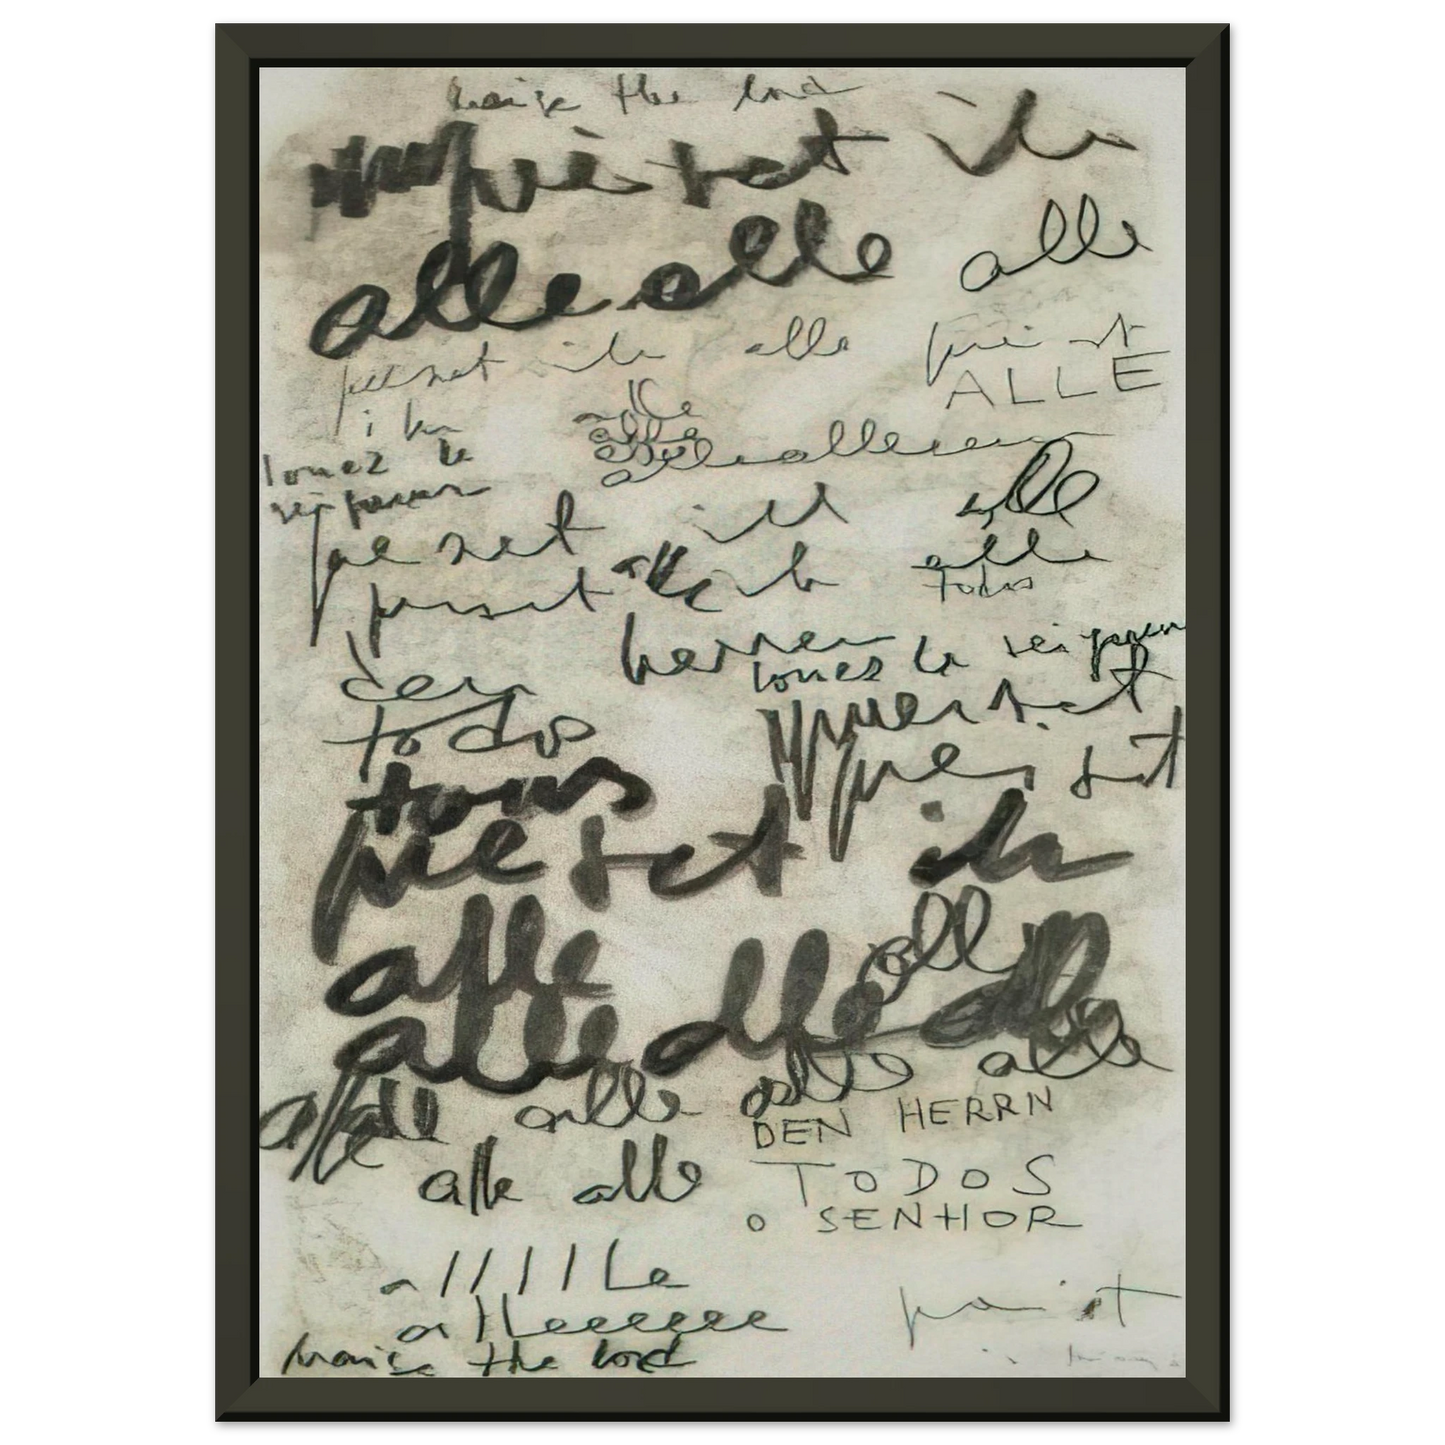 praise the lord
preiset ihn
alle alle alle
preiset ihn alle preiset
ALLE
ihn alle
louez le alle
seigneur alle alleeeee
preiset ihn alle
preiset alle ihn alle
todos
herrn louez le seigneur
den preiset
todos preiset
tous
preiset ihn
alle alle
alle alle alle
alle alle alle alle
DEN HERRN
alle alle TODOS
O SENHOR
allllle
preiset
alleeeeeee
praise the lord